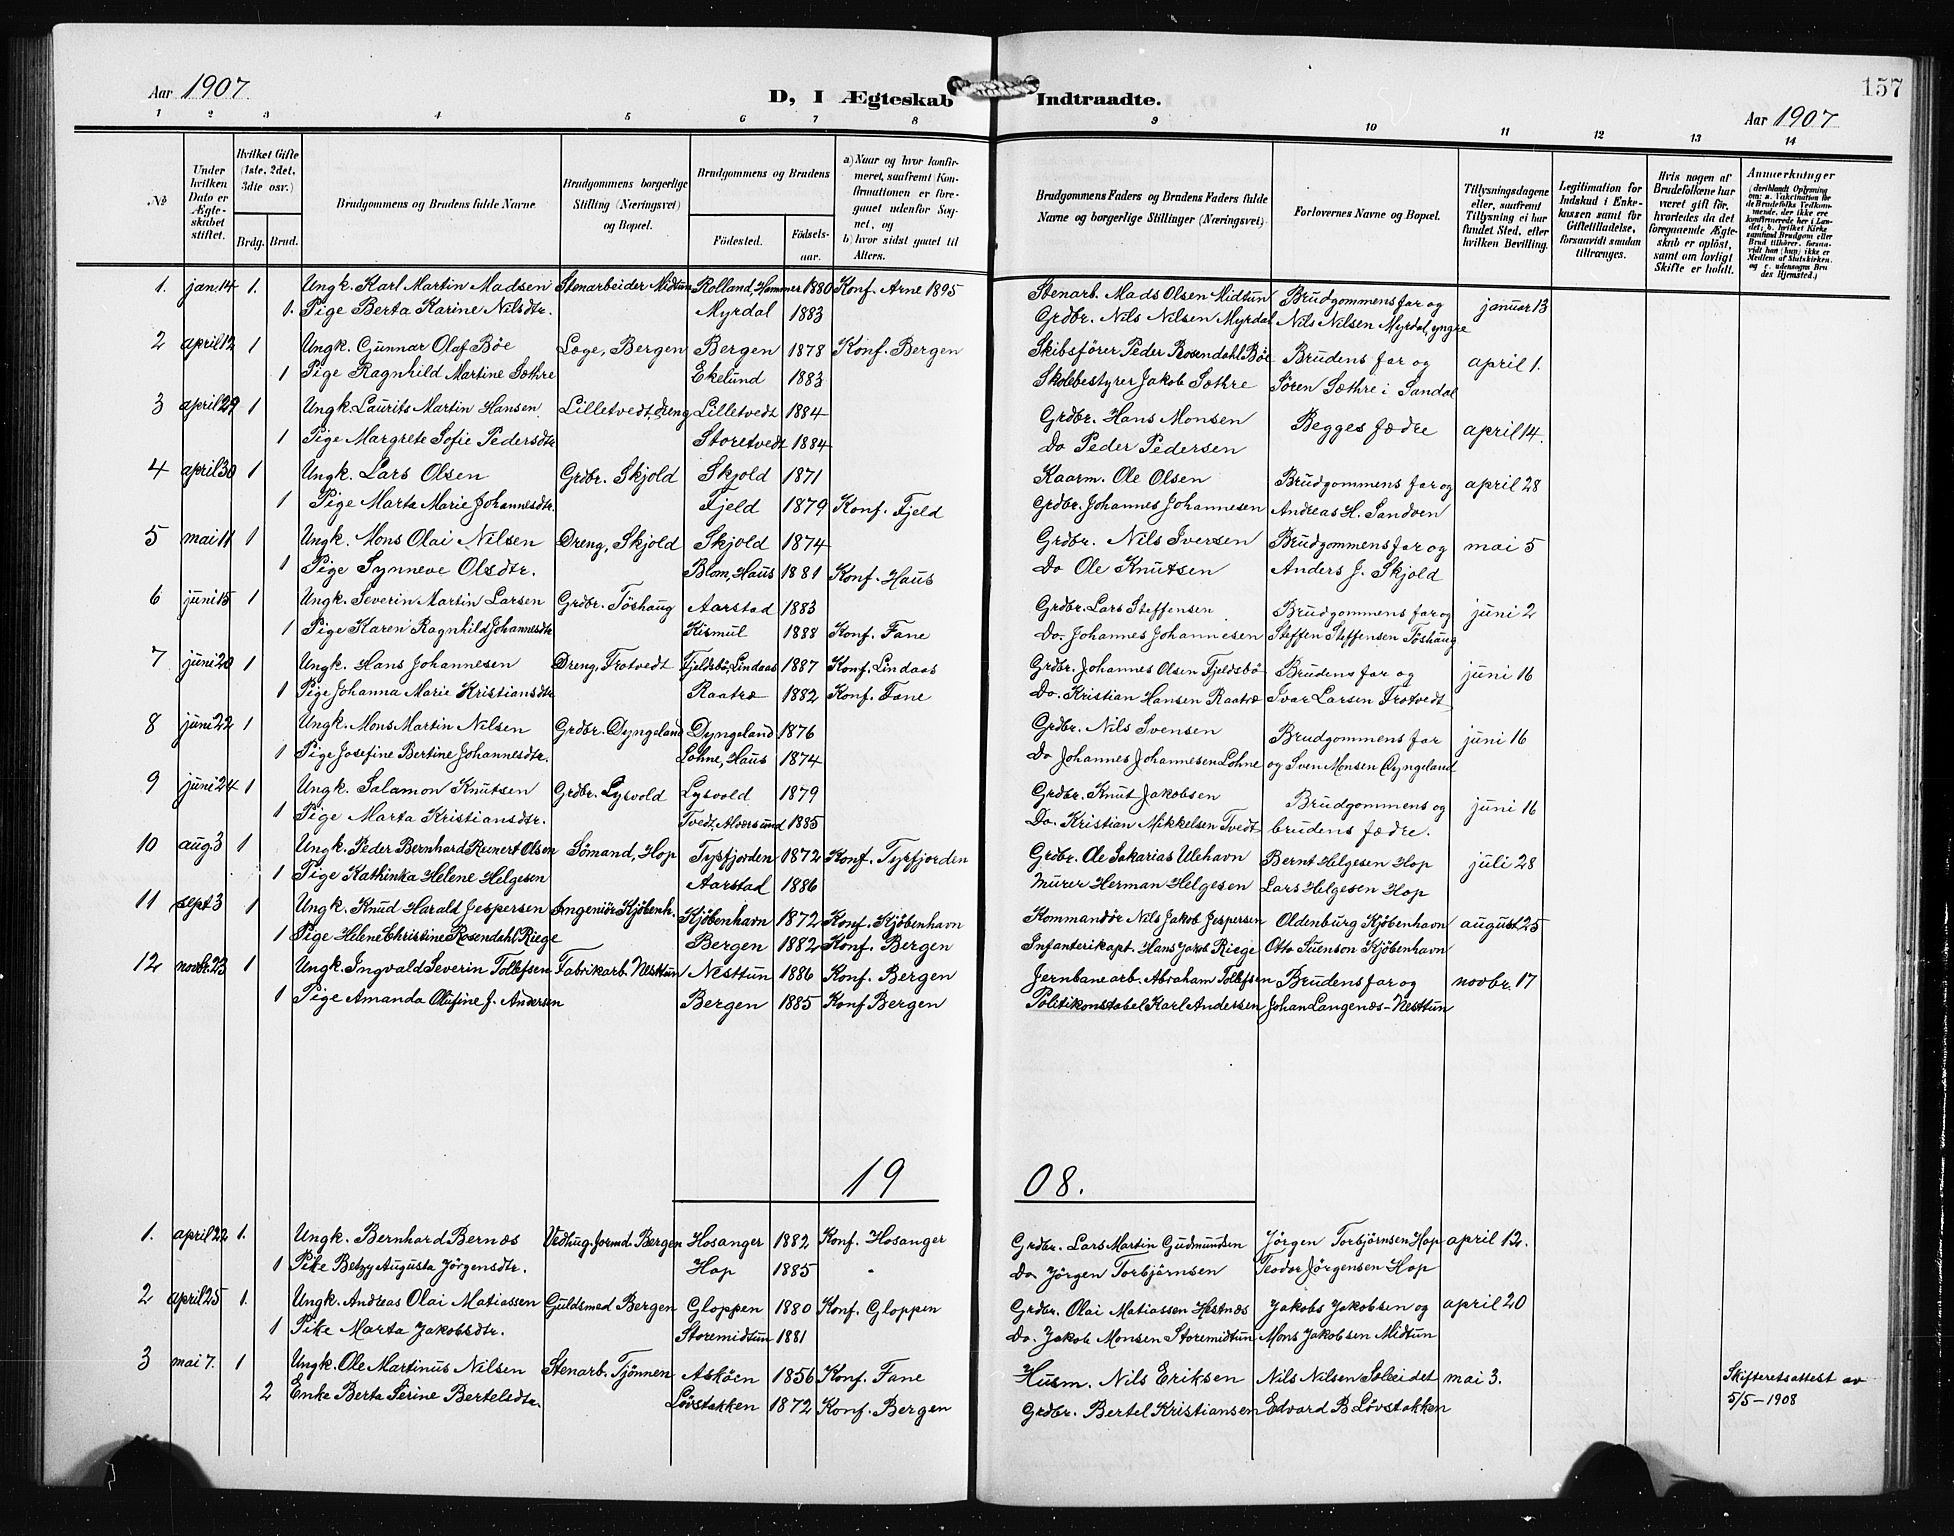 Aar 1907.
D, I Ægteskab Indtraadte.
157
Aar 1907
1 2 3 4 5 6 7 8 9 10 11 12 13 14
No
Under hvilken Dato er Ægteskabet stiftet.
Hvilket Gifte (1ste, 2det, 3dte osv.)
Brdg. Brud.
Brudgommens og Brudens fulde Navne
Brudgommens borgerlige Stilling (Næringsvei) og Bopæl.
Brudgommens og Brudens
Fødested. Fødselsaar.
a) Naar og hvor konfirmeret, saafremt Konfirmationen er foregaaet udenfor Sognet, og
b) hvor sidst gaaet til Alters.
Brudgommens Faders og Brudens Faders fulde Navne og borgerlige Stillinger (Næringsvei)
Forlovernes Navne og Bopæl.
Tillysningsdagene eller, saafremt Tillysning ei har fundet Sted, efter hvilken Bevilling.
Legitimation for Indskud i Enkekassen samt for Giftetilladelse, forsaavidt saadan tiltrænges.
Hvis nogen af Brudefolkene har været gift før, hvorledes da det foregaaende Ægteskab er opløst, samt om lovligt Skifte er holdt.
Anmærkninger
1. jan. 14 1. Ungk. Karl Martin Madsen Stenarbeider Midtun Rolland, Hammer 1880 Konf. Arne 1895 Stenarb. Mads Olsen Midtun Brudgommens far og januar 13
1. Pige Berta Karine Nilsdtr. Myrdal 1883 Grdbr. Nils Nilsen Myrdal Nils Nilsen Myrdal, yngre
2 april 12 1 Ungk. Gunnar Olaf Bøe Læge, Bergen Bergen 1878 Konf. Bergen Skibsfører Peder Rosendahl Bøe Brudens far og april 1.
1 Pige Ragnhild Martine Sæthre Ekelund 1883 Skolebestyrer Jakob Sæthre Søren Sæthre i Sandal
3 april 29 1 Ungk. Laurits Martin Hansen Lilletvedt, dreng Lilletvedt 1884 Grdbr. Hans Monsen Begges fædre april 14.
1 Pige Margrete Sofie Pedersdtr Storetvedt 1884 Do Peder Pedersen
4 april 30 1 Ungk. Lars Olsen Grdbr. Skjold Skjold 1871 Kaarm. Ole Olsen Brudgommens far og april 28
1 Pige Marta Marie Johannesdtr. Fjeld 1879 Konf. Fjeld Grdbr. Johannes Johannesen Andreas H. Sandven
5 mai 11 1 Ungk. Mons Olai Nilsen Dreng, Skjold Skjold 1874 Grdbr. Nils Iversen Brudgommens far og mai 5
1 Pige Synneve Olsdtr. Blom, Haus 1881 Konf. Haus Do Ole Knutsen Anders J. Skjold
6 juni 15 1 Ungk. Severin Martin Larsen Grdbr. Tøshaug Aarstad 1883 Grdbr. Lars Steffensen Brudgommens far og juni 2
1 Pige Karen Ragnhild Johannesdtr Kismul 1888 Konf. Fane Do. Johannes Johannesen Steffen Steffensen Tøshaug
7 juni 20 1 Ungk. Hans Johannesen Dreng, Trotvedt Fjeldsbø, Lindaas 1887 Konf. Lindaas Grdbr. Johannes Olsen Fjeldsbø Brudens far og juni 16
1 Pige Johanna Marie Kristiansdtr Raatræ 1882 Konf. Fane Do. Kristian Hansen Raatræ Ivar Larsen Trotvedt
8 juni 22 1 Ungk. Mons Martin Nilsen Grdbr. Dyngeland Dyngeland 1876 Grdbr. Nils Svensen Brudgommens far juni 16
1 Pige Josefine Bertine Johannesdtr. Lohne, Haus 1874 Do Johannes Johannesen Lohne og Sven Monsen Dyngeland
9 juni 24 1 Ungk. Salamon Knutsen Grdbr. Lysvold Lysvold 1879 Grdbr. Knut Jakobsen Brudgommens og juni 16
1 Pige Marta Kristiansdtr. Tvedt, Alversund 1885 Do. Kristian Mikkelsen Tvedt brudens fædre.
10 aug. 3 1 Ungk. Peder Bernhard Olsen Sømand, Hop Tysfjorden 1872 Konf. Tysfjorden Grdbr. Ole Sakarias Ulehavn Bernt Helgesen Hop juli 28
1 Pige Kathinka Helene Helgesen Aarstad 1886 Murer Herman Helgesen Lars Helgesen Hop
11 sept 3 1 Ungk. Knud Harald Jespersen Ingeniør Kjøbenh. Kjøbenhavn 1872 Konf. Kjøbenhavn Kommandør Nils Jakob Jespersen Oldenburg Kjøbenhavn august 25
1 Pige Helene Christine Rosendahl Riege Bergen 1882 Konf. Bergen Infanterikapt. Hans Jakob Riege Otto Suenson Kjøbenhavn
12 novbr. 23 1 Ungk. Ingvald Severin Tollefsen Fabrikarb. Nesttun Nesttun 1886 Konf. Bergen Jernbanearb. Abraham Tollefsen Brudens far og novbr. 17
1 Pige Amanda Olufine J. Andersen Bergen 1885 Konf Bergen Politikonstabel Karl Andersen Johan Langenæs - Nesttun
19 08.
1. april 22 1. Ungk. Bernhard Bernæs Vedhug. formd. Bergen Hosanger 1882 Konf. Hosanger Grdbr. Lars Martin Gudmundsen Jørgen Torbjørnsen Hop april 12.
1 Pike Betzy Augusta Jørgensdtr. Hop 1885 Do Jørgen Torbjørnsen Teodor Jørgensen Hop
2 april 25 1. Ungk. Andreas Olai Matiassen Guldsmed Bergen Gloppen 1880 Konf. Gloppen Grdbr. Olai Matiassen Hestnæs Jakobs Jakobsen og april 20
1 Pike Marta Jakobsdtr. Storemidtun 1881 Do. Jakob Monsen Storemidtun Mons Jakobsen Midtun
3 mai 7. 1 Ungk. Ole Martinus Nilsen Stenarb. Tjønnen Askøen 1856 Konf. Fane Husm. Nils Eriksen Nils Nilsen Søleidet mai 3. Skifteretsattest av
2 Enke Berta Serine Bertelsdtr. Løvstakken 1872 Konf. Bergen Grdbr. Bertel Kristiansen Edvard B Løvstakken 5/5 - 1908